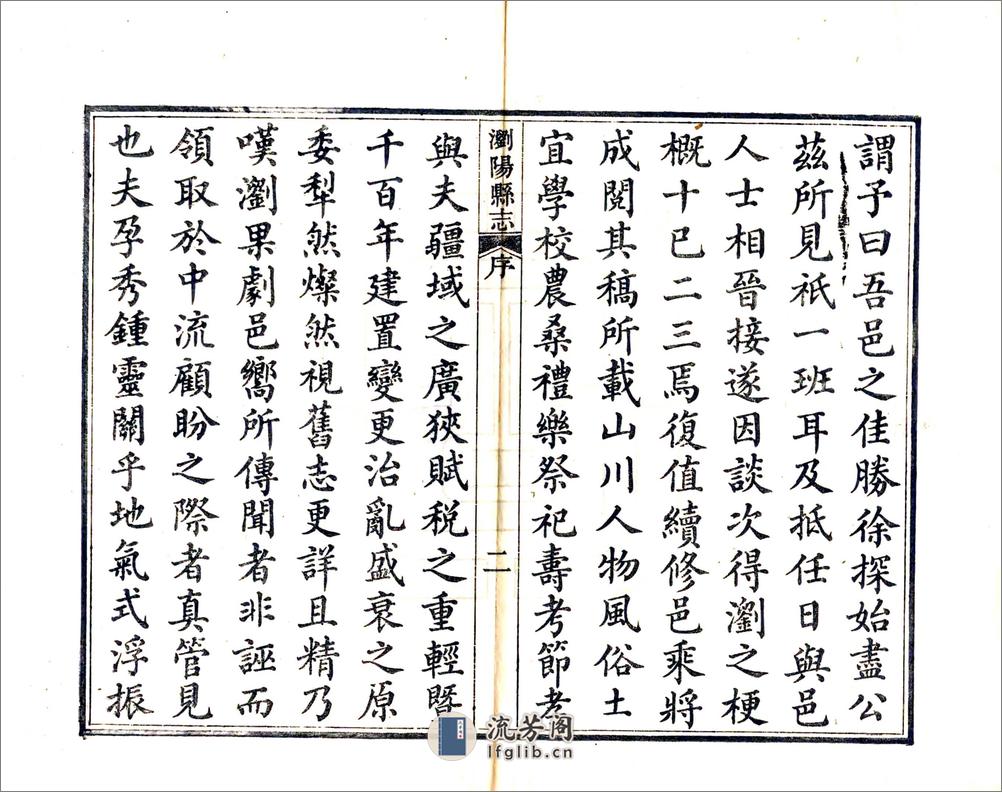 謂予曰吾邑之佳勝徐探始盡公
茲所見祇一班耳及抵任日與邑
人士相晉接遂因談次得瀏之梗
概十已二三焉復值續修邑乘將
成閱其稿所載山川人物風俗土
宜學校農桑禮樂祭祀壽考節孝
瀏陽縣志 序 二
與夫疆域之廣狹賦稅之重輕暨
千百年建置變更治亂盛衰之原
委犁然燦然視舊志更詳且精乃
嘆瀏果劇邑嚮所傳聞者非誣而
領取於中流顧盼之際者真管見
也夫孕秀鍾靈關乎地氣式浮振
流芳阁
lfglib.cn